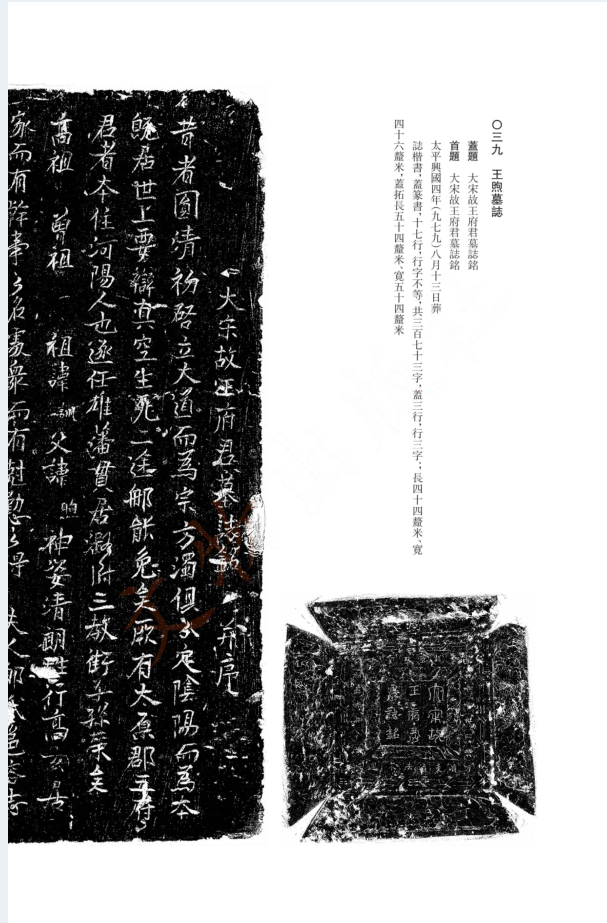 〇三九　王煦墓誌
蓋題　大宋故王府君墓誌銘
首題　大宋故王府君墓誌銘
太平興國四年(九七九)八月十三日葬
誌楷書，蓋篆書，十七行，行字不等，共三百七十三字，蓋三行，行三字；長四十四釐米、寬
四十六釐米，蓋拓長五十四釐米、寬五十四釐米
大宋故
王府君
墓誌銘
大宋故王府君墓誌銘 并序
昔者圓清初啓立大道而爲宗方濁俱分定陰陽而爲本
既居世上要辯真空生死二途那能免矣厥有太原郡王府
君者本住河陽人也遂任雄藩貫居潞府三教街子孫榮矣
高祖 曾祖 祖諱訓 父諱煦 神姿清朗性行高玄居
家而有幹事之名處衆而有慰懃之得 夫人郭氏